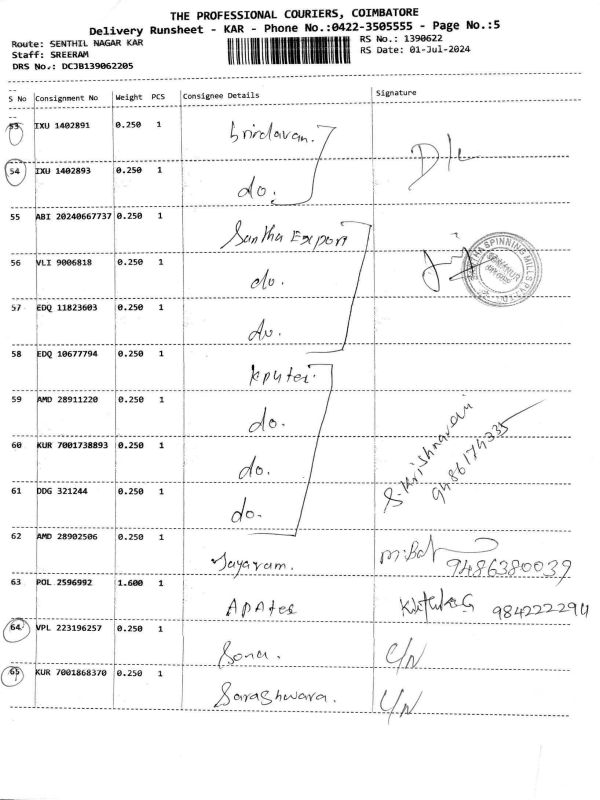 THE PROFESSIONAL COURIERS, COIMBATORE
Delivery Runsheet - KAR - Phone No.:0422-3505555 - Page No.:5
Route: SENTHIL NAGAR KAR
RS No.: 1390622
Staff: SREERAM
RS Date: 01-Jul-2024
DRS No.: DCJB139062205
S No Consignment No Weight PCS Consignee Details Signature
53 IXU 1402891 0.250 1
54 IXU 1402893 0.250 1 do.
55 ABI 20240667737 0.250 1 Santha Export
56 VLI 9006818 0.250 1 do.
SPINNING MILLS
57 EDQ 11823603 0.250 1 do.
58 EDQ 10677794 0.250 1
59 AMD 28911220 0.250 1 do.
60 KUR 7001738893 0.250 1 do. S. Krishnaveni
9486174335
61 DDG 321244 0.250 1 do.
62 AMD 28902506 0.250 1 Jayaram. 9486380039
63 POL 2596992 1.600 1 9842222944
64 VPL 223196257 0.250 1 Sona. C/N
65 KUR 7001868370 0.250 1 Sarashwara. C/N